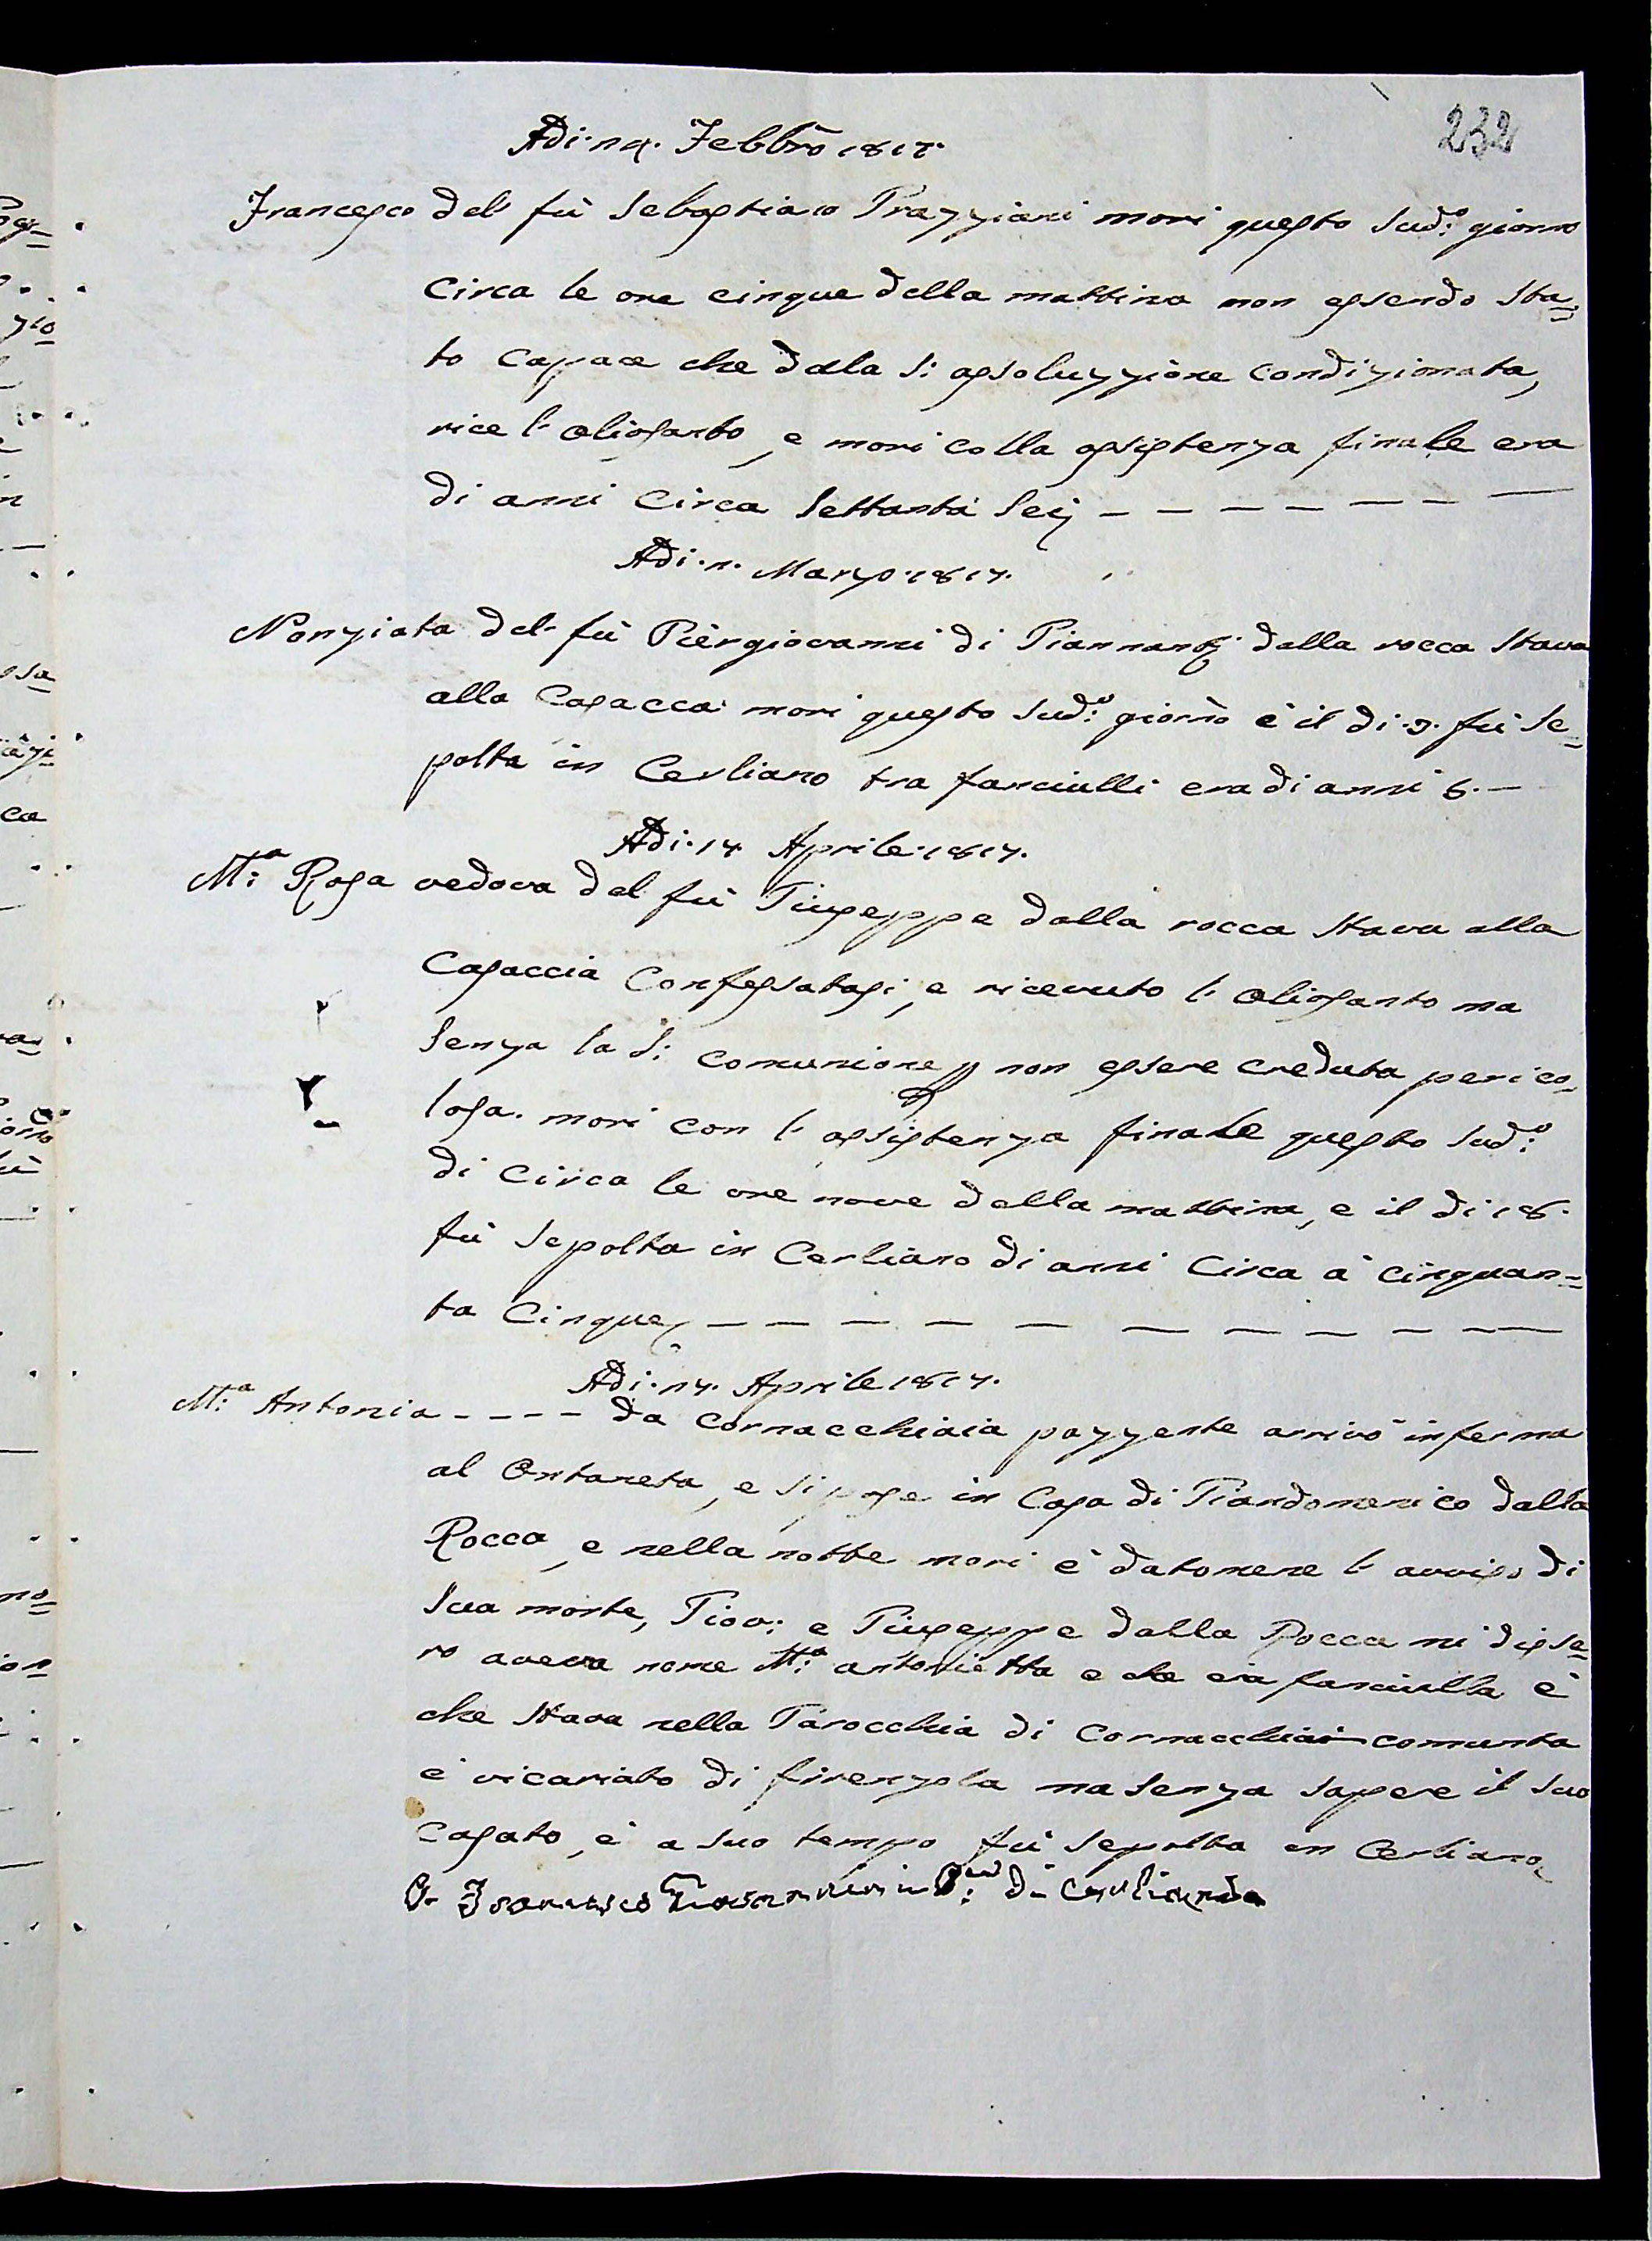 232
Adi. 14. Febbro 1817.
Francesco del fù Sebastiano Grazziani mori questo Sud:o giorno
Circa le ore cinque della mattina non essendo Sta=
to Capace che della S: assoluzzione condizionata,
rice l'oliosanto, e mori colla assistenza finale era
di anni Circa Settanta Seij — — — — — — —
Adi. 1. Marzo. 1817.
Nonziata del fù Piergiovanni di dalla rocca Stava
alla Casacca mori questo Sud:o giorno è il di .3. fù Se=
polta in Cerliano tra fanciulli era di anni 6. —
Adi. 17 Aprile. 1817.
M:a Rosa vedova del fù Giuseppe dalla rocca Stava alla
Casaccia Confessatasi, e ricevuto l'oliosanto ma
Senza la S: comunione p non essere creduta perico=
losa. mori con l'assistenza finale questo Sud:o
di Circa le ore nove della mattina, e il di 18.
fù Sepolta in Cerliano di anni Circa a cinquan=
ta Cinque — — — — — — — — — —
Adi. 17. Aprile 1817.
M:a Antonia - - - - da Cornacchiaia pozzente arrivò inferma
al Ontaneta, e Si pose in Casa di Giandomenico dalla
Rocca, e nella notte mori è datomene l'avviso di
Sua morte, Giov: e Giuseppe dalla Rocca mi disse=
ro aveva nome M:a antonietta e che era fanciulla è
che Stava nella Parocchia di Cornacchiaia comunta
è vicariato di firenzola ma Senza sapere il Suo
Casato, è a suo tempo fù Sepolta in Cerliano
Francesco Giovannini di Cerliano